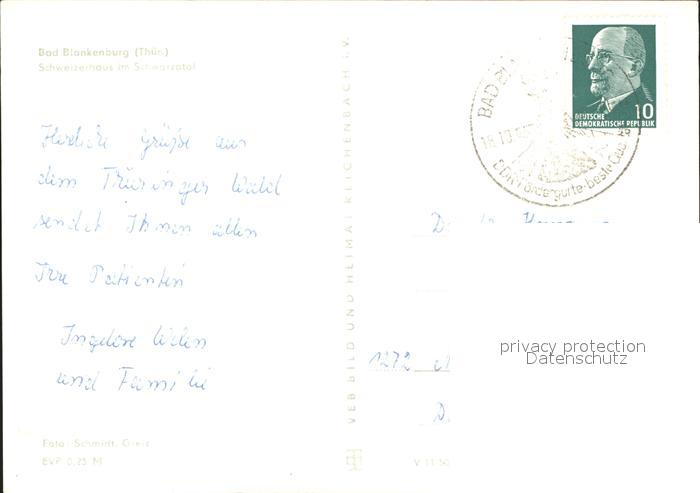 Bad Blankenburg (Thür.)
Schweizerhaus im Schwarzatal
Herzliche Grüße aus
dem Thüringer Wald
sendet Ihnen allen
Ihre Patientin
Ingelore
und Familie
Foto: Schmidt, Greiz
EVP 0,25 M
VEB BILD UND HEIMAT REICHENBACH i. V.
V 11 50
BAD
DDR
gute
beste
DEUTSCHE
DEMOKRATISCHE REPUBLIK
10
1272
privacy protection
Datenschutz